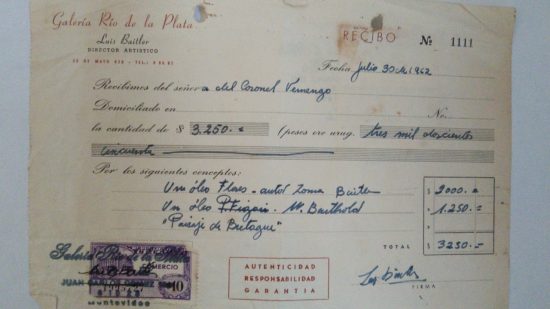 Galería Río de la Plata
Luis Baitler
DIRECTOR ARTISTICO
RECIBO Nº 1111
Fecha Julio 30 de 1962
Recibimos del señor a del Coronel Vernengo
Domiciliado en No.
la cantidad de $ 3.250.= (pesos oro urug. tres mil doscientos
cincuenta
Por los siguientes conceptos:
Un óleo Flores - autor Zoma Baitler $ 2000.=
Un óleo P. Figari - M. Barthold $ 1.250.=
"Paisaje de Bretagne"
TOTAL $ 3250.=
Galería Río de la Plata
COMERCIO
10
JUAN CARLOS GOMEZ
Montevideo
AUTENTICIDAD
RESPONSABILIDAD
GARANTIA
FIRMA